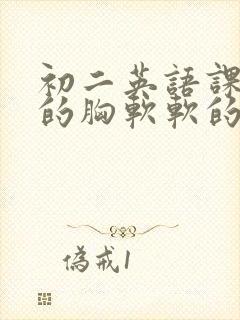 初二英語課
的胸軟軟的
偽戒1